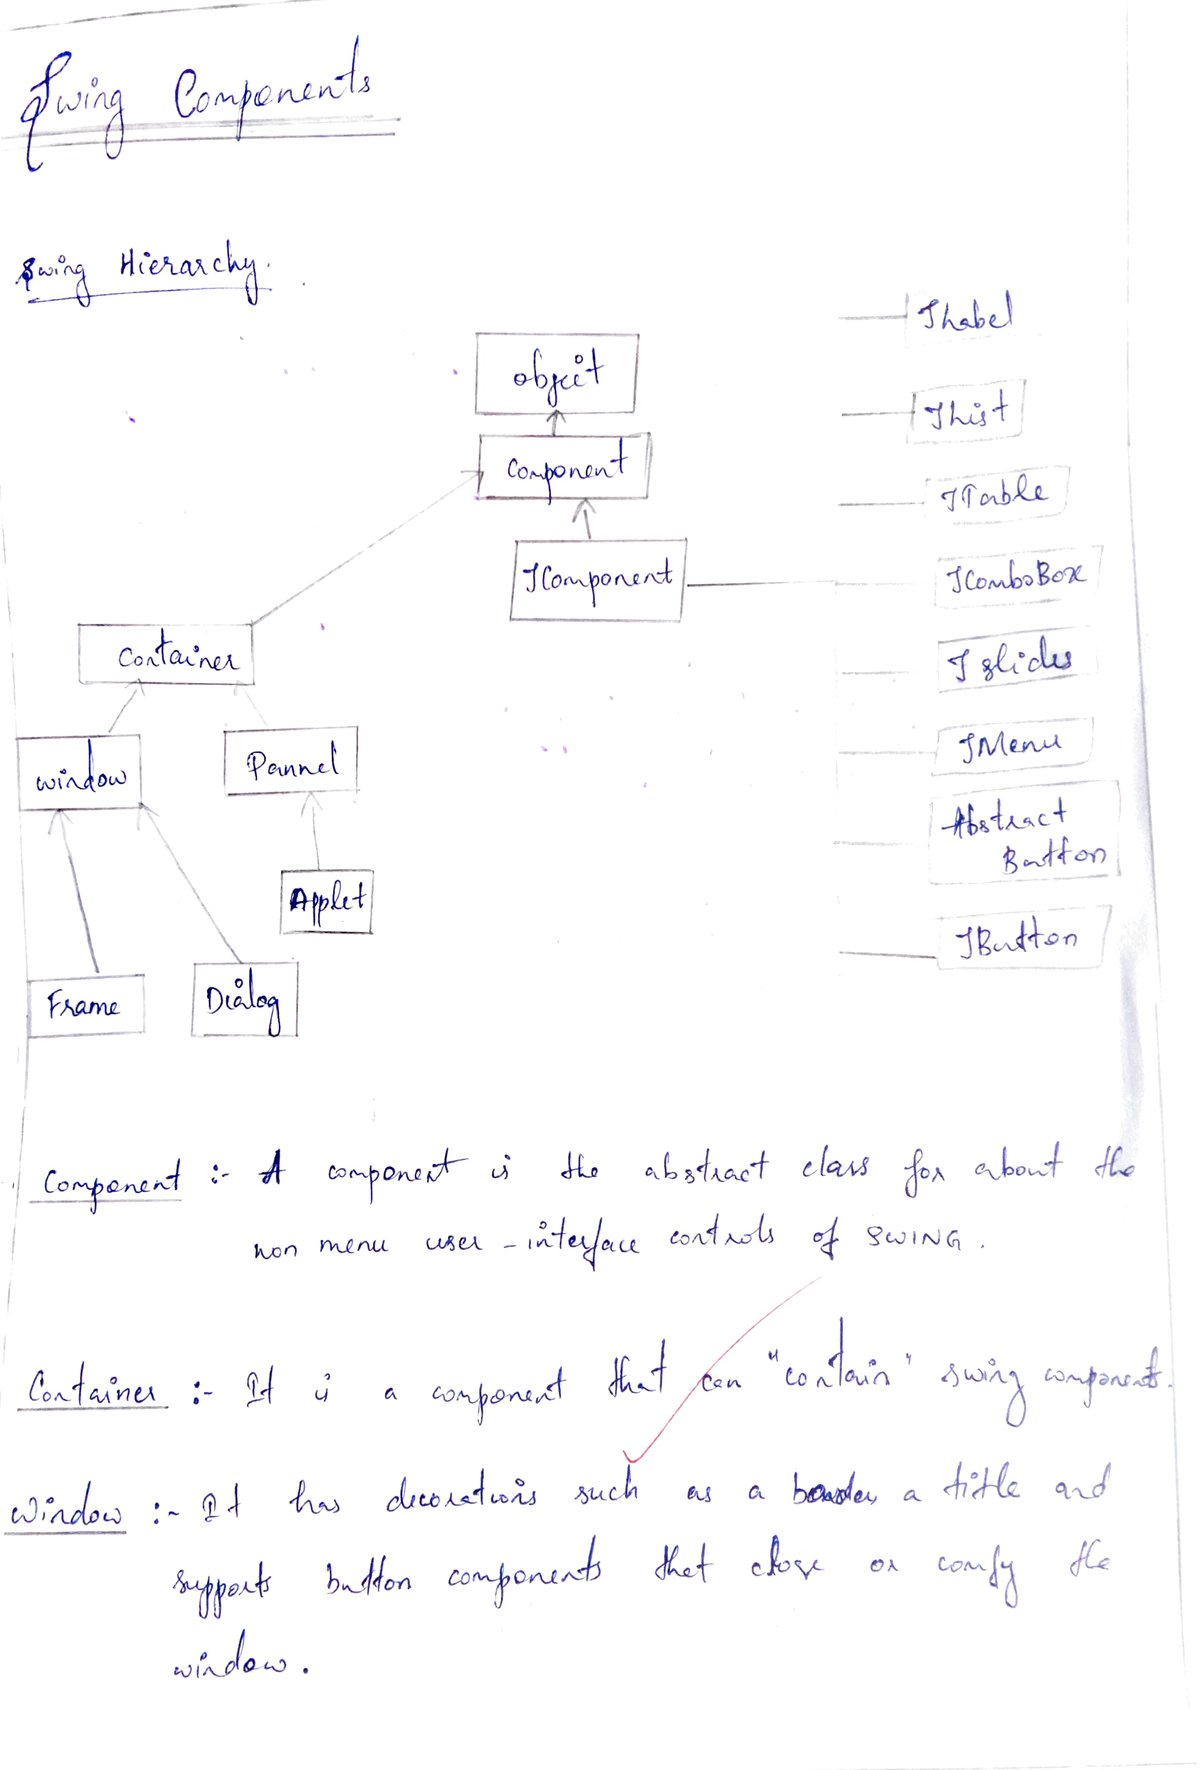 Swing Components
Swing Hierarchy.
object
Component
JComponent
Container
Window
Pannel
Applet
Frame
Dialog
JLabel
JList
JTable
JComboBox
J slider
JMenu
Abstract
Button
JButton
Component :- A component is the abstract class for about the
non menu user-interface controls of SWING.
Container :- It is a component that can "contain" swing components.
Window :- It has decorations such as a border, a title and
supports button components that close or the
window.